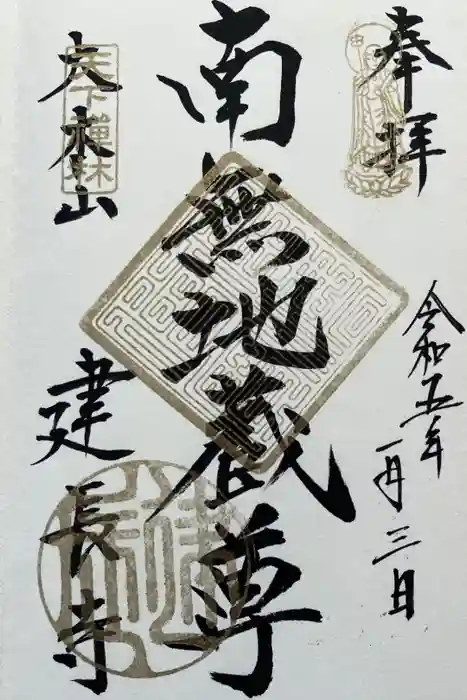 奉拝
令和五年
一月三日
南無地蔵尊
天下禅林
巨福山
建長寺